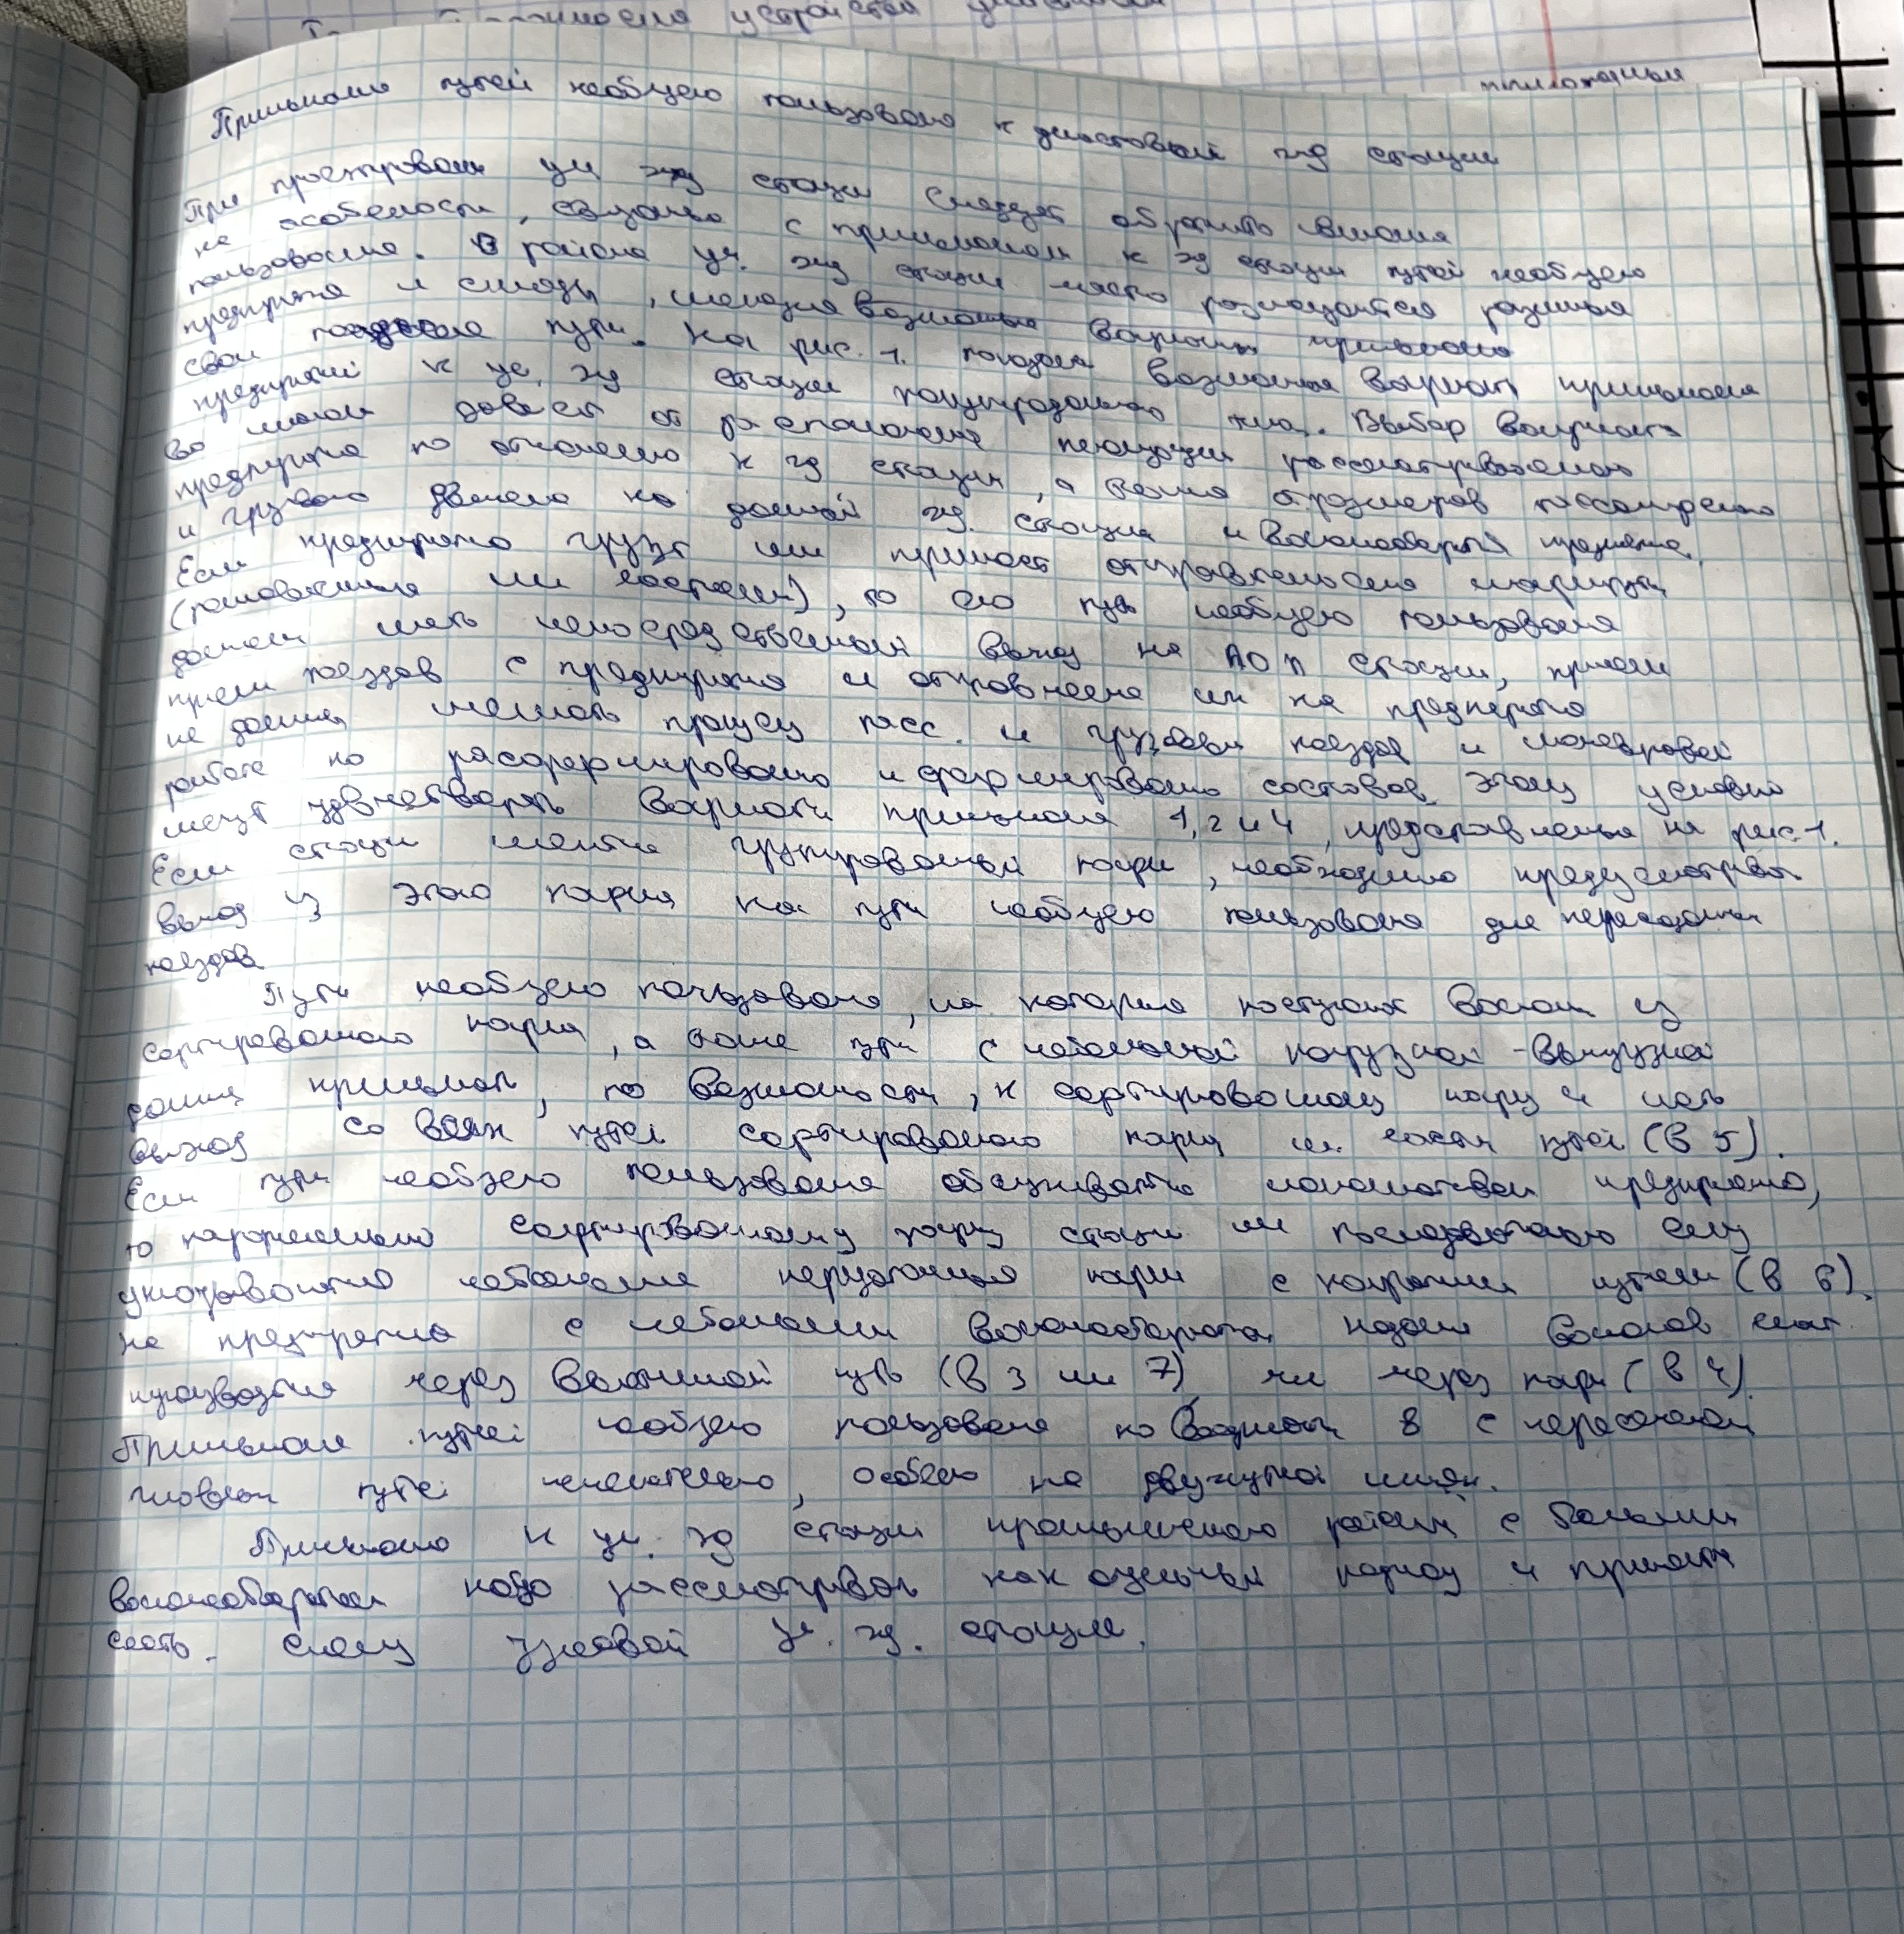 устройства
Примыкание путей необщего пользования к участковый жд станции
При проектировании уч жд станции следует обратить внимание
на особености, связаные с примыканием к жд станции путей необщего
пользования. В районе уч. жд станции часто размещаются различные
предприятия и склады, имеющие возможные варианты примыкания
свои подъездные пути. На рис. 1. показаны возможные варианты примыкания
предприятий к уч. жд станции полупродольного типа. Выбор варианта
Во многом зависит от расположения площадки рассматриваемого
предприятия по отношению к жд станции, а также от размеров пассажирского
и грузового движения на данной жд. станции и вагонооборота предприятия.
Если предприятие грузит или принимает отправительские маршруты
(постоянные или частично), то его путь необщего пользования
должен иметь непосредственный выход на ПОП станции, причем
прием поездов с предприятия и отправление их на предприятие
не должны мешать пропуску пасс. и грузовых поездов и маневровой
работе по расформированию и формированию составов. Этому условию
могут удовлетворять варианты примыкания 1, 2 и 4, представленые на рис. 1.
Если станции имеется группировочный парк, необходимо предусмотреть
выход из этого парка на пути необщего пользования для передаточных
поездов
Пути необщего пользования, на которые поступают вагоны из
сортировочного парка, а также пути с небольшой погрузкой-выгрузкой
должны примыкать, по возможности, к сортировочному парку и иметь
выход со всех путей сортировочного парка или части путей (в 5).
Если пути необщего пользования обслуживаются локомотивом предприятия,
то параллельно сортировочному парку станции или последовательно ему
укладываются небольшие передаточные парки с короткими путями (в 6).
На предприятия с небольшим вагонооборотом подача вагонов может
производится через вытяжной путь (в 3 или 7) или через парк (в 4).
Примыкание путей необщего пользования по варианту 8 с пересечением
главных путей нежелательно, особено на двухпутной линии.
Примыкание к уч. жд станции промышленного района с большим
вагонооборотом надо рассматривать как отдельный подход и принимать
соотв. схему узловой уч. жд. станции.